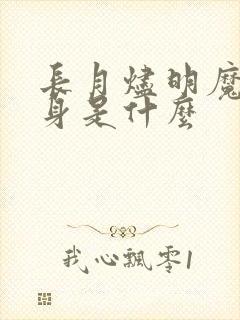 長月燼明魔
身是什麼
我心飄零1